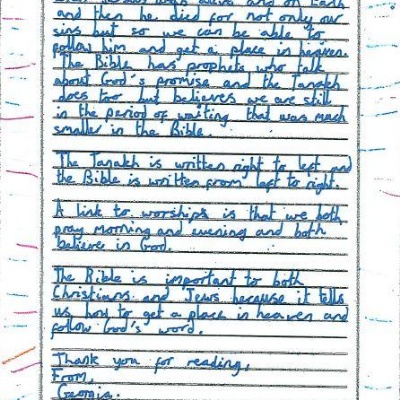 Jesus was alive and on Earth
and then he died for not only our
sins but so we can be able to
follow him and get a place in heaven.
The Bible has prophets who talk
about God's promise and the Tanakh
does too but believes we are still
in the period of waiting that was much
smaller in the Bible.
The Tanakh is written right to left and
the Bible is written from left to right.
A link to worships is that we both
pray morning and evening and both
believe in God.
The Bible is important to both
Christians and Jews because it tells
us how to get a place in heaven and
follow God's word.
Thank you for reading,
From,
Georgia.